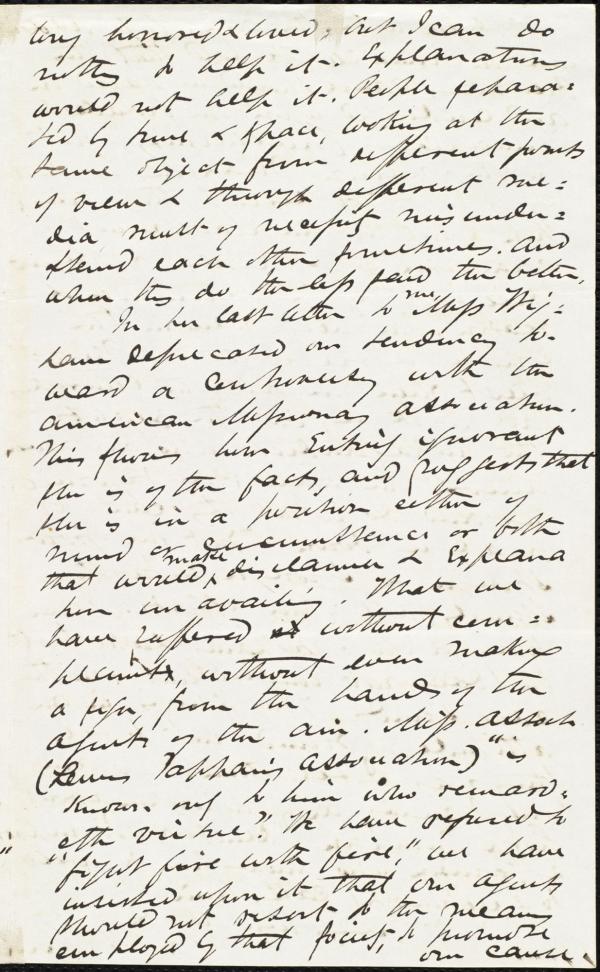 long honored & loved, but I can do
nothing to help it. Explanations
would not help it. People separa=
ted by time & space, looking at the
same object from different points
of view & through different me=
dia must of necessity misunder=
stand each other sometimes. And
when they do the less said the better.
In her last letter to me Miss Wig=
ham deprecated our tendency to=
ward a controversy with the
American Missionary association.
This shows how entirely ignorant
she is of the facts, and suggests that
she is in a position either of
mind or circumstance or both
that would make disclaimer & Explana
tion unavailing. What we
have suffered without com=
plaint, without even making
a sign, from the hands of the
agents of the Am. Miss. Assocn
(Lewis Tappan's association) "is
known only to him who reward=
eth virtue." We have refused to
"fight fire with fire," we have
insisted upon it that our agents
should not resort to the means
employed by that society, to promote
our cause.